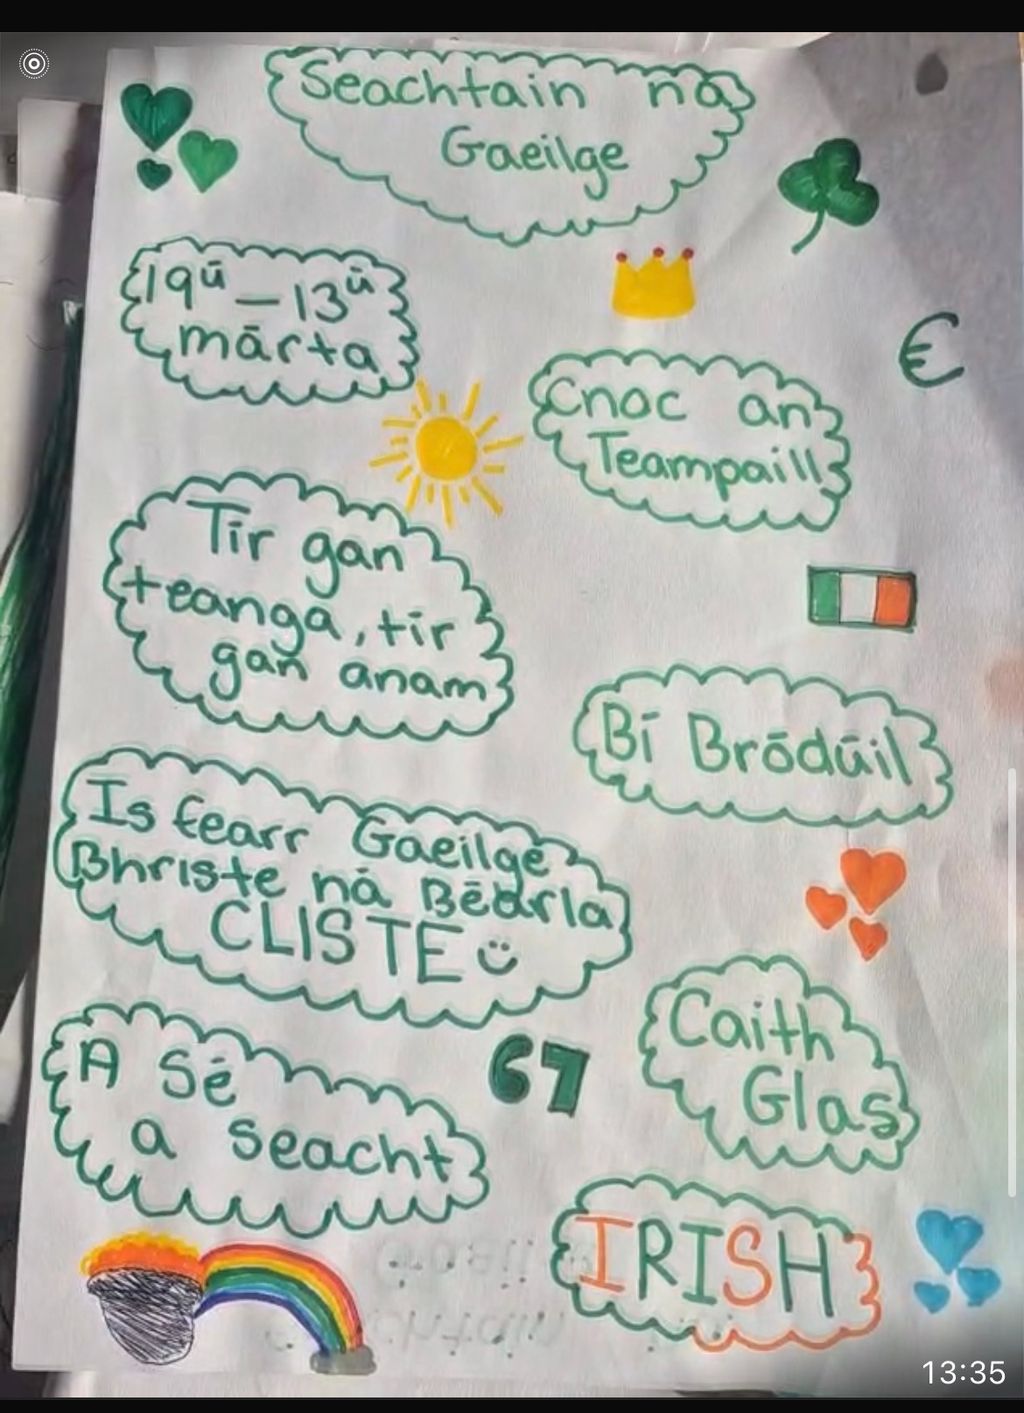 Seachtain na
Gaeilge
19ú - 13ú
márta
€
Cnoc an
Teampaill
Tír gan
teanga, tír
gan anam
Bí Bródúil
Is fearr Gaeilge
Bhriste ná Béarla
CLISTE
A Sé
a seacht
67
Caith
Glas
IRISH
13:35